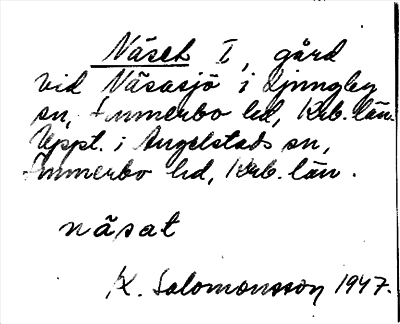 Näset I, gård
vid Näsasjö i Ljungby
sn, Sunnerbo hd, Krb. län.
Uppt. i Angelstads sn,
Sunnerbo hd, Krb. län.
näsat
K. Salomonsson 1947.